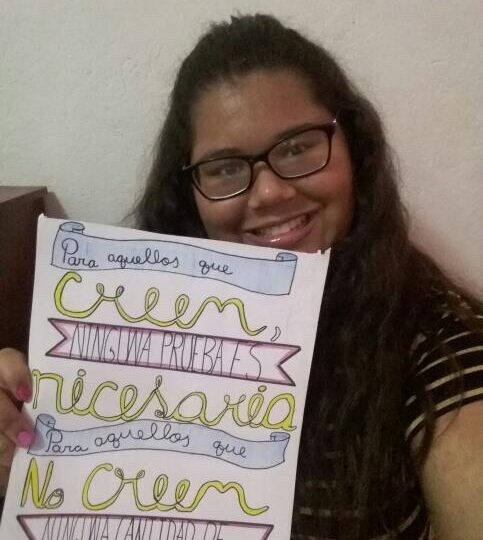 Para aquellos que
creen,
NINGUNA PRUEBA ES
nicesaria
Para aquellos que
No creen
NINGUNA CANTIDAD DE